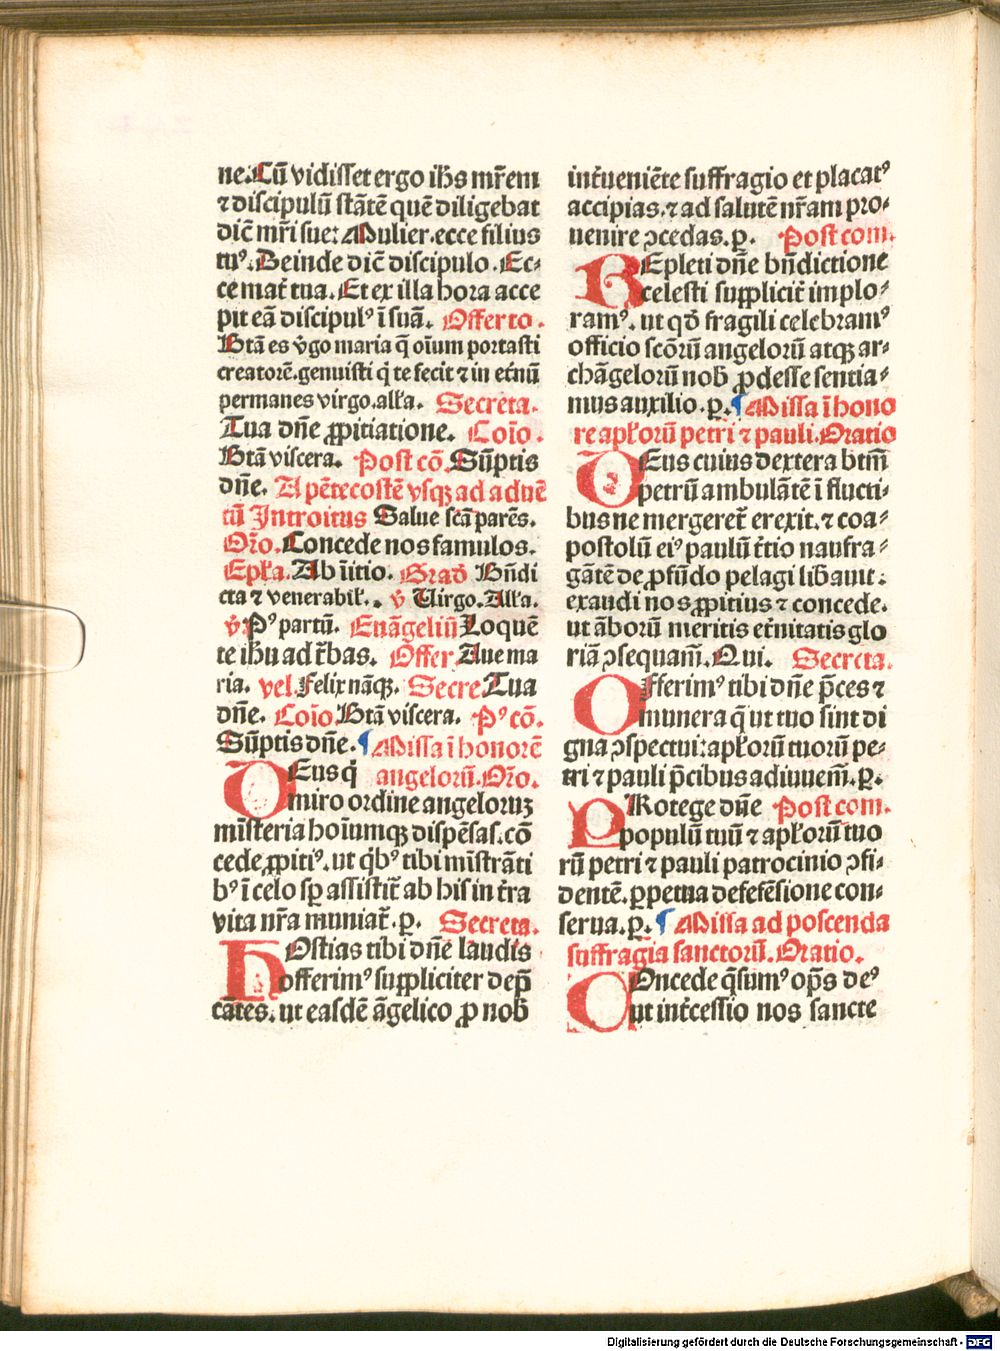 ne. Cū vidisset ergo ihs mr̄em
⁊ discipulū stātē quē diligebat
dic̄ mr̄i sue: Mulier. ecce filius
tuꝰ. Deinde dic̄ discipulo. Ec⸗
ce mat̄ tua. Et ex illa hora acce
pit eā discipulꝰ ī suā. Offerto.
Btā es v̄go maria q̄ oīum portasti
creatorē. genuisti q̇ te fecit ⁊ in et̄nū
permanes virgo. all'a. Secreta.
Tua dn̄e ꝓpitiatione. Coīo.
Btā viscera. Post cō. Sūptis
dn̄e. A pētecostē vsqꝫ ad aduē
tū Introitus Salue sc̄a parēs.
Or̄o. Concede nos famulos.
Epl'a. Ab īitio. Grad̄ Bn̄di
cta ⁊ venerabil'. . v̄ Uirgo. All'a.
v̄. Pꝰ partū. Euāgeliū Loquē
te ihu ad t̄bas. Offer. Aue ma
ria. vel. Felix nāqꝫ. Secre. Tua
dn̄e. Coīo. Btā viscera. Pꝰ cō.
Sūptis dn̄e. ¶ Missa ī honorē
DEus q̇ angelorū. Or̄o.
miro ordine angeloruꝫ
misteria hoīumqꝫ dispēsas. cō
cede ꝓpitiꝰ. ut q̇bꝰ tibi mīstrāti
bꝰ ī celo sꝑ assistit̄ ab his in t̄ra
vita nr̄a muniat̄. ꝑ. Secreta.
HOstias tibi dn̄e laudis
offerimꝰ suppliciter dep̄
cātes. ut easdē āgelico ꝓ nob̄
int̄ueniēte suffragio et placatꝰ
accipias. ⁊ ad salutē nr̄am pro⸗
uenire ɔcedas. ꝑ. Post com.
REpleti dn̄e bn̄dictione
celesti supplicit̄ implo⸗
ramꝰ. ut qd̄ fragili celebramꝰ
officio scōrū angelorū atqꝫ ar⸗
chāgelorū nob̄ ꝓdesse sentia⸗
mus auxilio. ꝑ. ¶ Missa ī hono
re apl'orū petri ⁊ pauli. Oratio
DEus cuius dextera btm̄
petrū ambulātē ī flucti⸗
bus ne mergeret̄ erexit. ⁊ coa⸗
postolū eiꝰ paulū t̄tio naufra⸗
gātē de ꝓfūdo pelagi libauit:
exaudi nos ꝓpitius ⁊ concede.
ut āborū meritis et̄nitatis glo
riā ɔsequam̄. Qui. Secreta.
OFferimꝰ tibi dn̄e p̄ces ⁊
munera q̄ ut tuo sint di
gna ɔspectui: apl'orū tuorū pe⸗
tri ⁊ pauli p̄cibus adiuuem̄. ꝑ.
PRotege dn̄e Post com.
populū tuū ⁊ apl'orū tuo
rū petri ⁊ pauli patrocinio ɔfi⸗
dentē. ꝑpetua defefēsione con⸗
serua. ꝑ. ¶ Missa ad poscenda
suffragia sanctorū. Oratio.
COncede q̄sumꝰ op̄s deꝰ
ut int̄cessio nos sancte
Digitalisierung gefördert durch die Deutsche Forschungsgemeinschaft - DFG